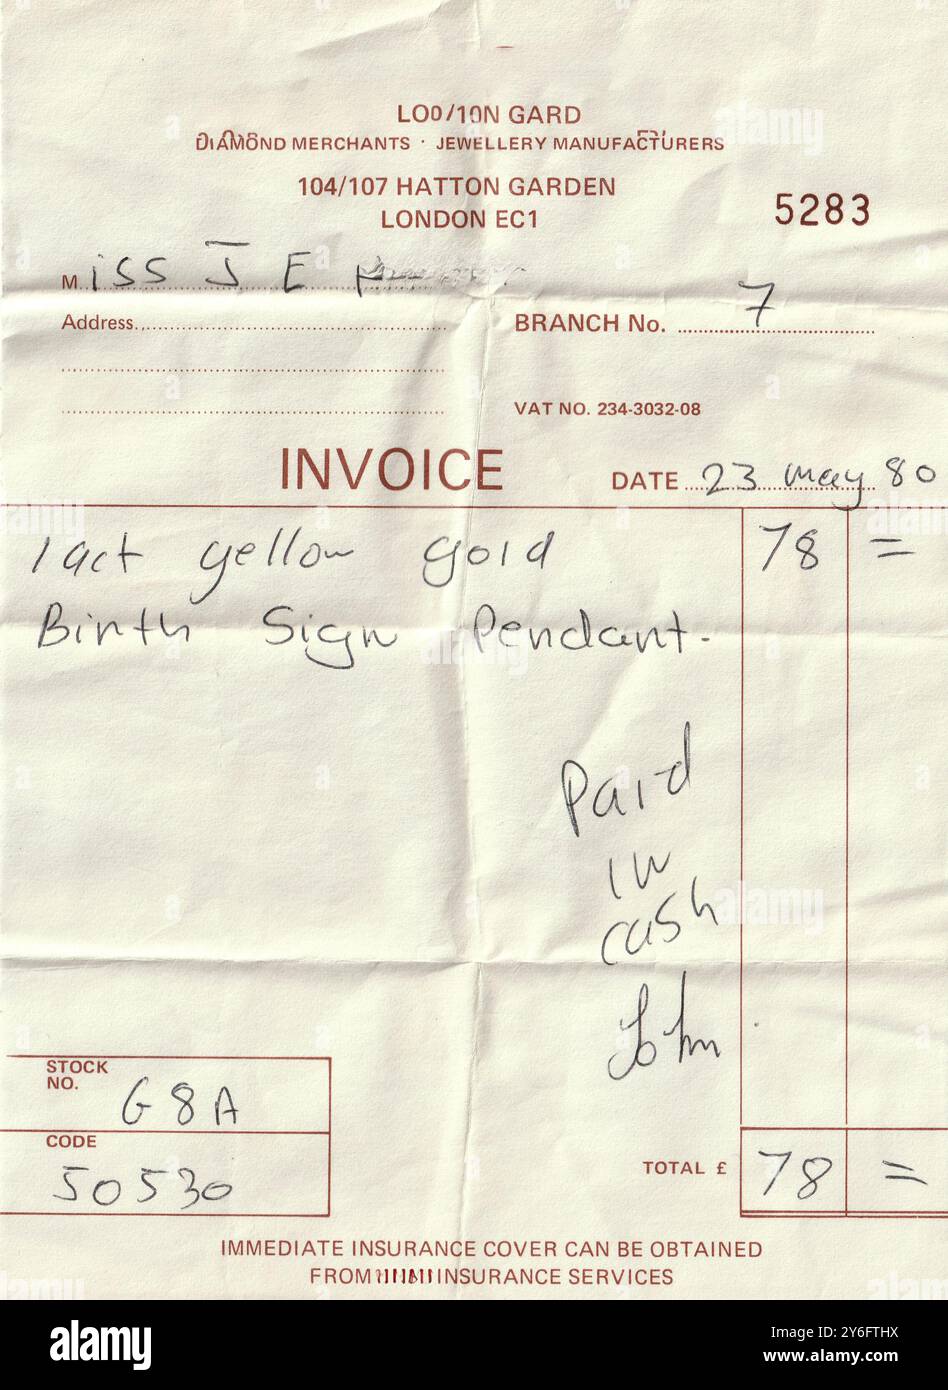 LO0/10N GARD
DIAMOND MERCHANTS · JEWELLERY MANUFACTURERS
104/107 HATTON GARDEN
LONDON EC1
5283
Miss J E
Address
BRANCH No. 7
VAT NO. 234-3032-08
INVOICE
DATE 23 May 80
1 9ct yellow gold 78 =
Birth Sign Pendant.
Paid
in
cash
John
STOCK
NO. G8A
CODE
50530
TOTAL £ 78 =
IMMEDIATE INSURANCE COVER CAN BE OBTAINED
FROM INSURANCE SERVICES
alamy
Image ID: 2Y6FTHX
www.alamy.com